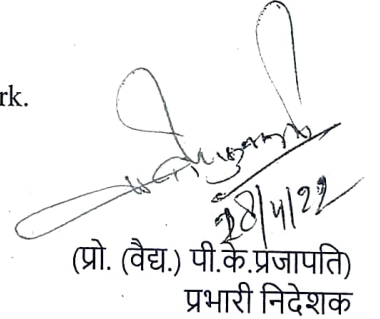 rk.
28/4/22
(प्रो. (वैद्य.) पी.के.प्रजापति)
प्रभारी निदेशक